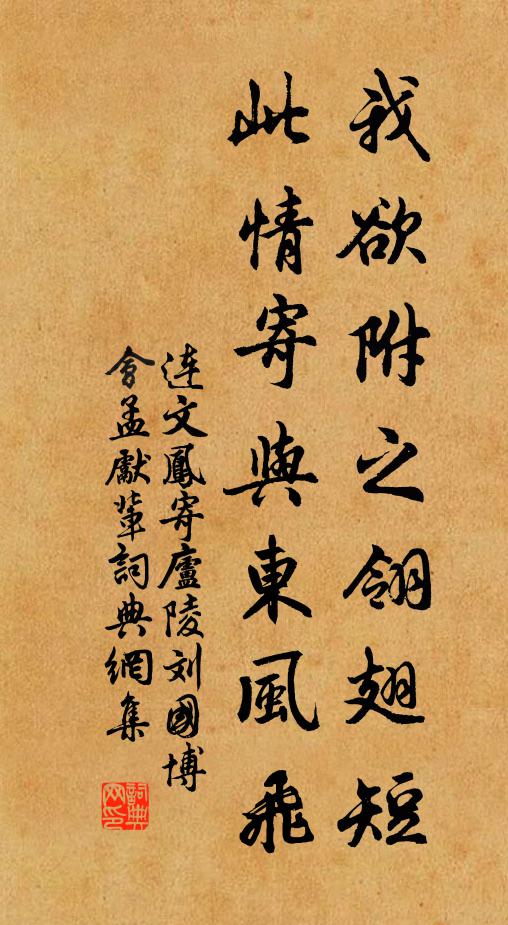 我欲附之翎翅短
此情寄與東風飛
連文鳳寄廬陵刘國博
會孟獻輩詞典網集
詞典
网印